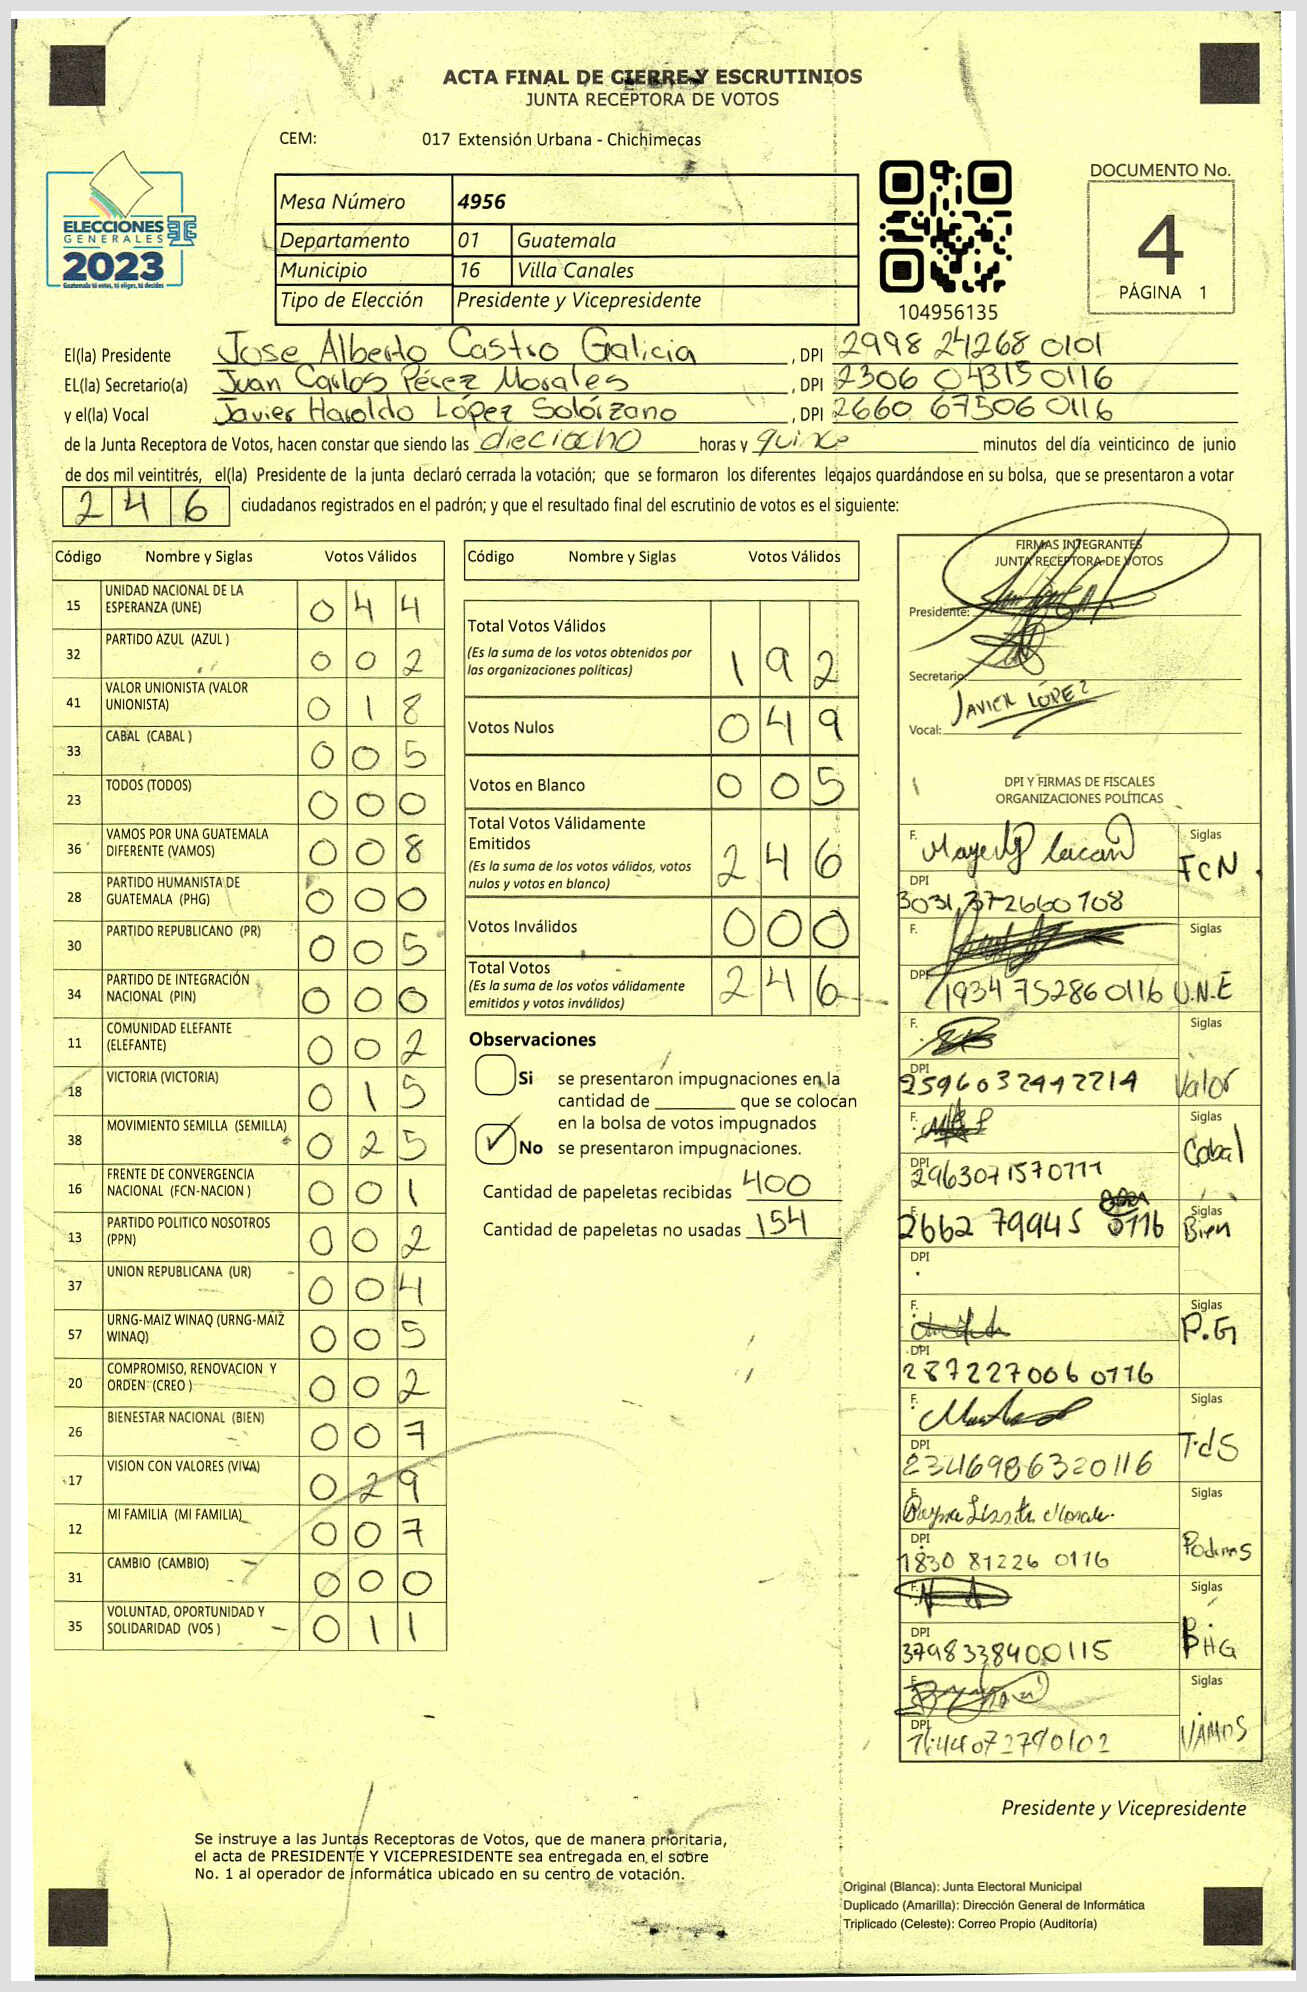 ACTA FINAL DE CIERRE Y ESCRUTINIOS
JUNTA RECEPTORA DE VOTOS
CEM: 017 Extensión Urbana - Chichimecas
ELECCIONES
GENERALES
2023
Guatemala tú votas, tú eliges, tú decides
Mesa Número 4956
Departamento 01 Guatemala
Municipio 16 Villa Canales
Tipo de Elección Presidente y Vicepresidente
104956135
DOCUMENTO No.
4
PÁGINA 1
El(la) Presidente Jose Alberto Castro Galicia , DPI 2998 24268 0101
EL(la) Secretario(a) Juan Carlos Pérez Morales , DPI 2306 04315 0116
y el(la) Vocal Javier Haroldo López Solórzano , DPI 2660 67506 0116
de la Junta Receptora de Votos, hacen constar que siendo las dieciocho horas y quince minutos del día veinticinco de junio
de dos mil veintitrés, el(la) Presidente de la junta declaró cerrada la votación; que se formaron los diferentes legajos guardándose en su bolsa, que se presentaron a votar
246 ciudadanos registrados en el padrón; y que el resultado final del escrutinio de votos es el siguiente:
Código Nombre y Siglas Votos Válidos
15 UNIDAD NACIONAL DE LA ESPERANZA (UNE) 044
32 PARTIDO AZUL (AZUL ) 002
41 VALOR UNIONISTA (VALOR UNIONISTA) 018
33 CABAL (CABAL ) 005
23 TODOS (TODOS) 000
36 VAMOS POR UNA GUATEMALA DIFERENTE (VAMOS) 008
28 PARTIDO HUMANISTA DE GUATEMALA (PHG) 000
30 PARTIDO REPUBLICANO (PR) 005
34 PARTIDO DE INTEGRACIÓN NACIONAL (PIN) 000
11 COMUNIDAD ELEFANTE (ELEFANTE) 002
18 VICTORIA (VICTORIA) 015
38 MOVIMIENTO SEMILLA (SEMILLA) 025
16 FRENTE DE CONVERGENCIA NACIONAL (FCN-NACION ) 001
13 PARTIDO POLITICO NOSOTROS (PPN) 002
37 UNION REPUBLICANA (UR) 004
57 URNG-MAIZ WINAQ (URNG-MAIZ WINAQ) 005
20 COMPROMISO, RENOVACION Y ORDEN (CREO ) 002
26 BIENESTAR NACIONAL (BIEN) 007
17 VISION CON VALORES (VIVA) 029
12 MI FAMILIA (MI FAMILIA) 007
31 CAMBIO (CAMBIO) 000
35 VOLUNTAD, OPORTUNIDAD Y SOLIDARIDAD (VOS ) 011
Código Nombre y Siglas Votos Válidos
Total Votos Válidos 192
(Es la suma de los votos obtenidos por
las organizaciones políticas)
Votos Nulos 049
Votos en Blanco 005
Total Votos Válidamente
Emitidos 246
(Es la suma de los votos válidos, votos
nulos y votos en blanco)
Votos Inválidos 000
Total Votos 246
(Es la suma de los votos válidamente
emitidos y votos inválidos)
Observaciones
Si se presentaron impugnaciones en la
cantidad de que se colocan
en la bolsa de votos impugnados
No se presentaron impugnaciones.
Cantidad de papeletas recibidas 400
Cantidad de papeletas no usadas 154
FIRMAS INTEGRANTES
JUNTA RECEPTORA DE VOTOS
Presidente:
Secretario:
Vocal: JAVIER LÓPEZ
DPI Y FIRMAS DE FISCALES
ORGANIZACIONES POLÍTICAS
F. Siglas
FCN
DPI
3031 372660708
F. Siglas
DPI
1934 75286 0116 U.N.E
F. Siglas
DPI
2596032442214 Valor
F. Siglas
Cabal
DPI
2963071570111
F. Siglas
2662 79945 0116 Bien
DPI
F. Siglas
P.G
DPI
2872270060116
F. Siglas
DPI
2346986320116
F. Siglas
DPI
1830 81226 0116 Podemos
F. Siglas
DPI
3798338400115 PHG
F. Siglas
DPI
VAMOS
Presidente y Vicepresidente
Se instruye a las Juntas Receptoras de Votos, que de manera prioritaria,
el acta de PRESIDENTE Y VICEPRESIDENTE sea entregada en el sobre
No. 1 al operador de informática ubicado en su centro de votación.
Original (Blanca): Junta Electoral Municipal
Duplicado (Amarilla): Dirección General de Informática
Triplicado (Celeste): Correo Propio (Auditoría)